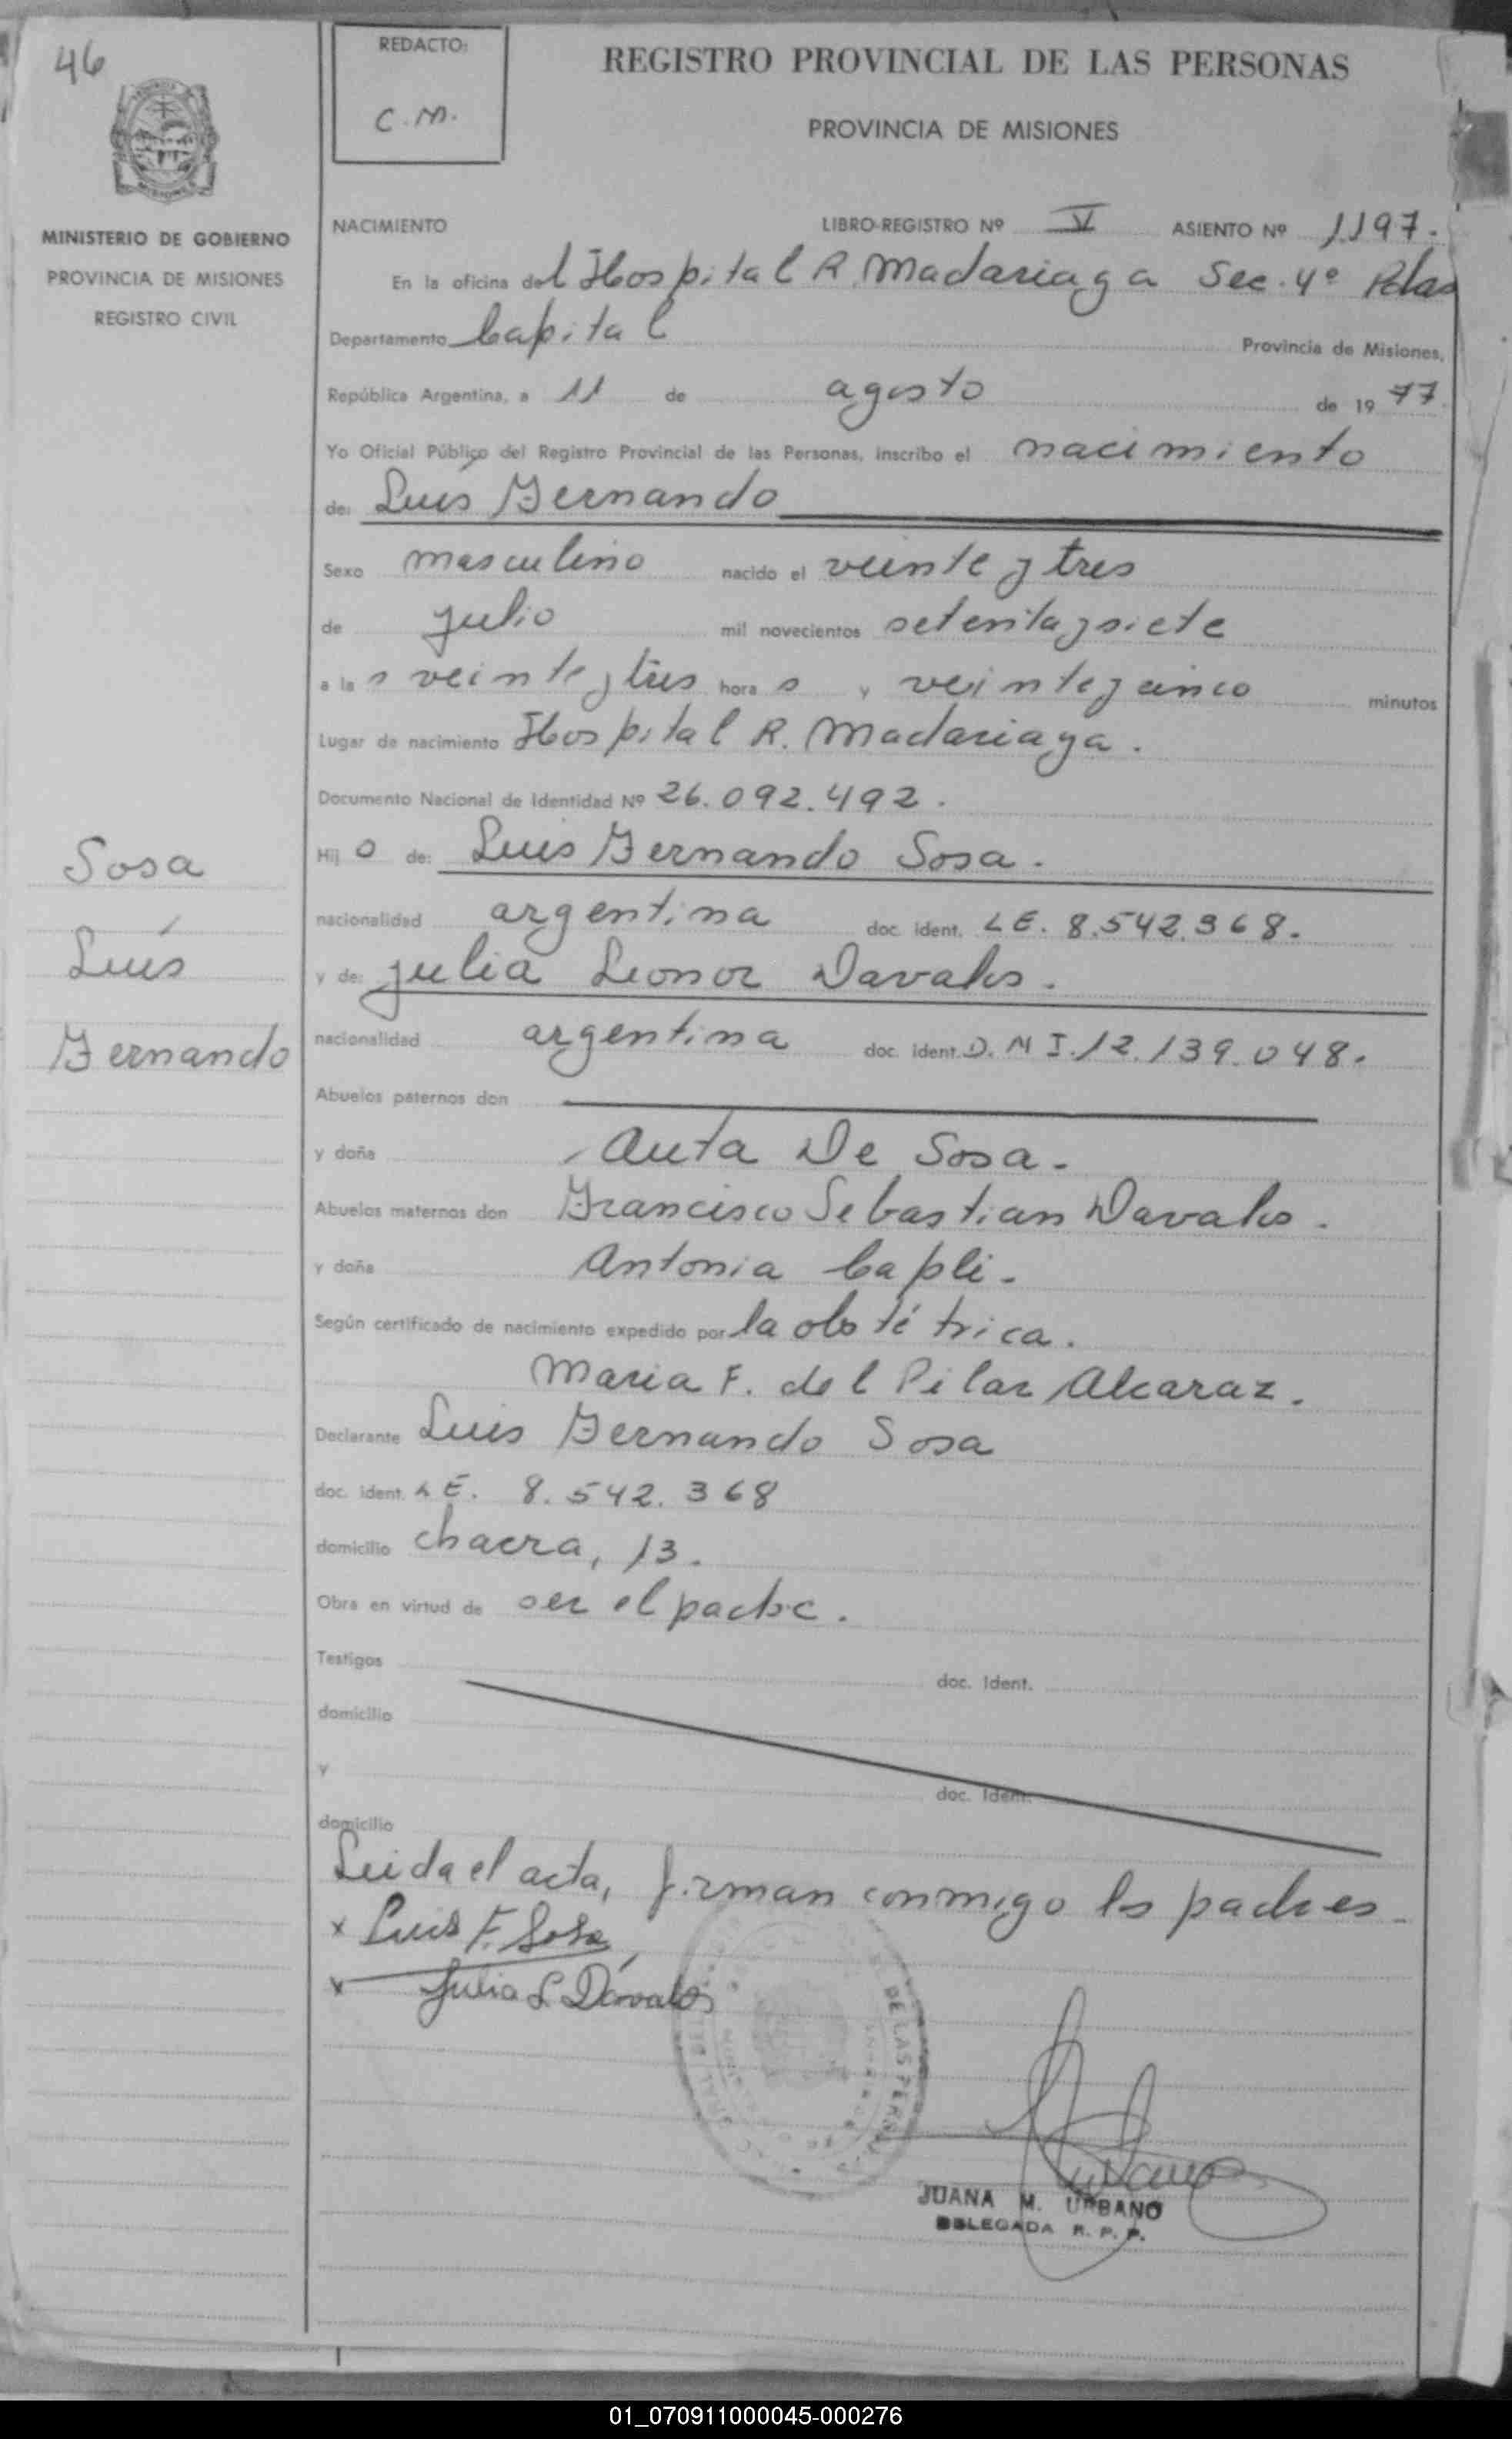 46
REDACTO:
C.M.
REGISTRO PROVINCIAL DE LAS PERSONAS
PROVINCIA DE MISIONES
MINISTERIO DE GOBIERNO
PROVINCIA DE MISIONES
REGISTRO CIVIL
NACIMIENTO LIBRO-REGISTRO Nº V ASIENTO Nº 1197.
En la oficina del Hospital R. Madariaga Sec. 4º Pdas
Departamento Capital Provincia de Misiones,
República Argentina, a 11 de agosto de 1977.
Yo Oficial Público del Registro Provincial de las Personas, inscribo el nacimiento
de: Luis Fernando
Sexo masculino nacido el veinte y tres
de julio mil novecientos setenta y siete
a las veinte y tres horas y veinte y cinco minutos
Lugar de nacimiento Hospital R. Madariaga.
Documento Nacional de Identidad Nº 26.092.492.
Hijo de: Luis Fernando Sosa.
nacionalidad argentina doc. ident. L E. 8.542.368.
y de: Julia Leonor Davalos.
nacionalidad argentina doc. ident. D. N I. 12.139.048.
Abuelos paternos don
y doña Auta De Sosa.
Abuelos maternos don Francisco Sebastian Davalos.
y doña Antonia Capli.
Según certificado de nacimiento expedido por la obstétrica.
Maria F. del Pilar Alcaraz.
Declarante Luis Fernando Sosa
doc. ident. L E. 8.542.368
domicilio chacra, 13.
Obra en virtud de ser el padre.
Testigos doc. Ident.
domicilio
y doc. Ident.
domicilio
Leida el acta, firman conmigo los padres.
x Luis F. Sosa
x Julia L. Dávalos
Sosa
Luís
Fernando
DE LAS PERSONAS
JUANA M. URBANO
DELEGADA R. P. P.
01_070911000045-000276